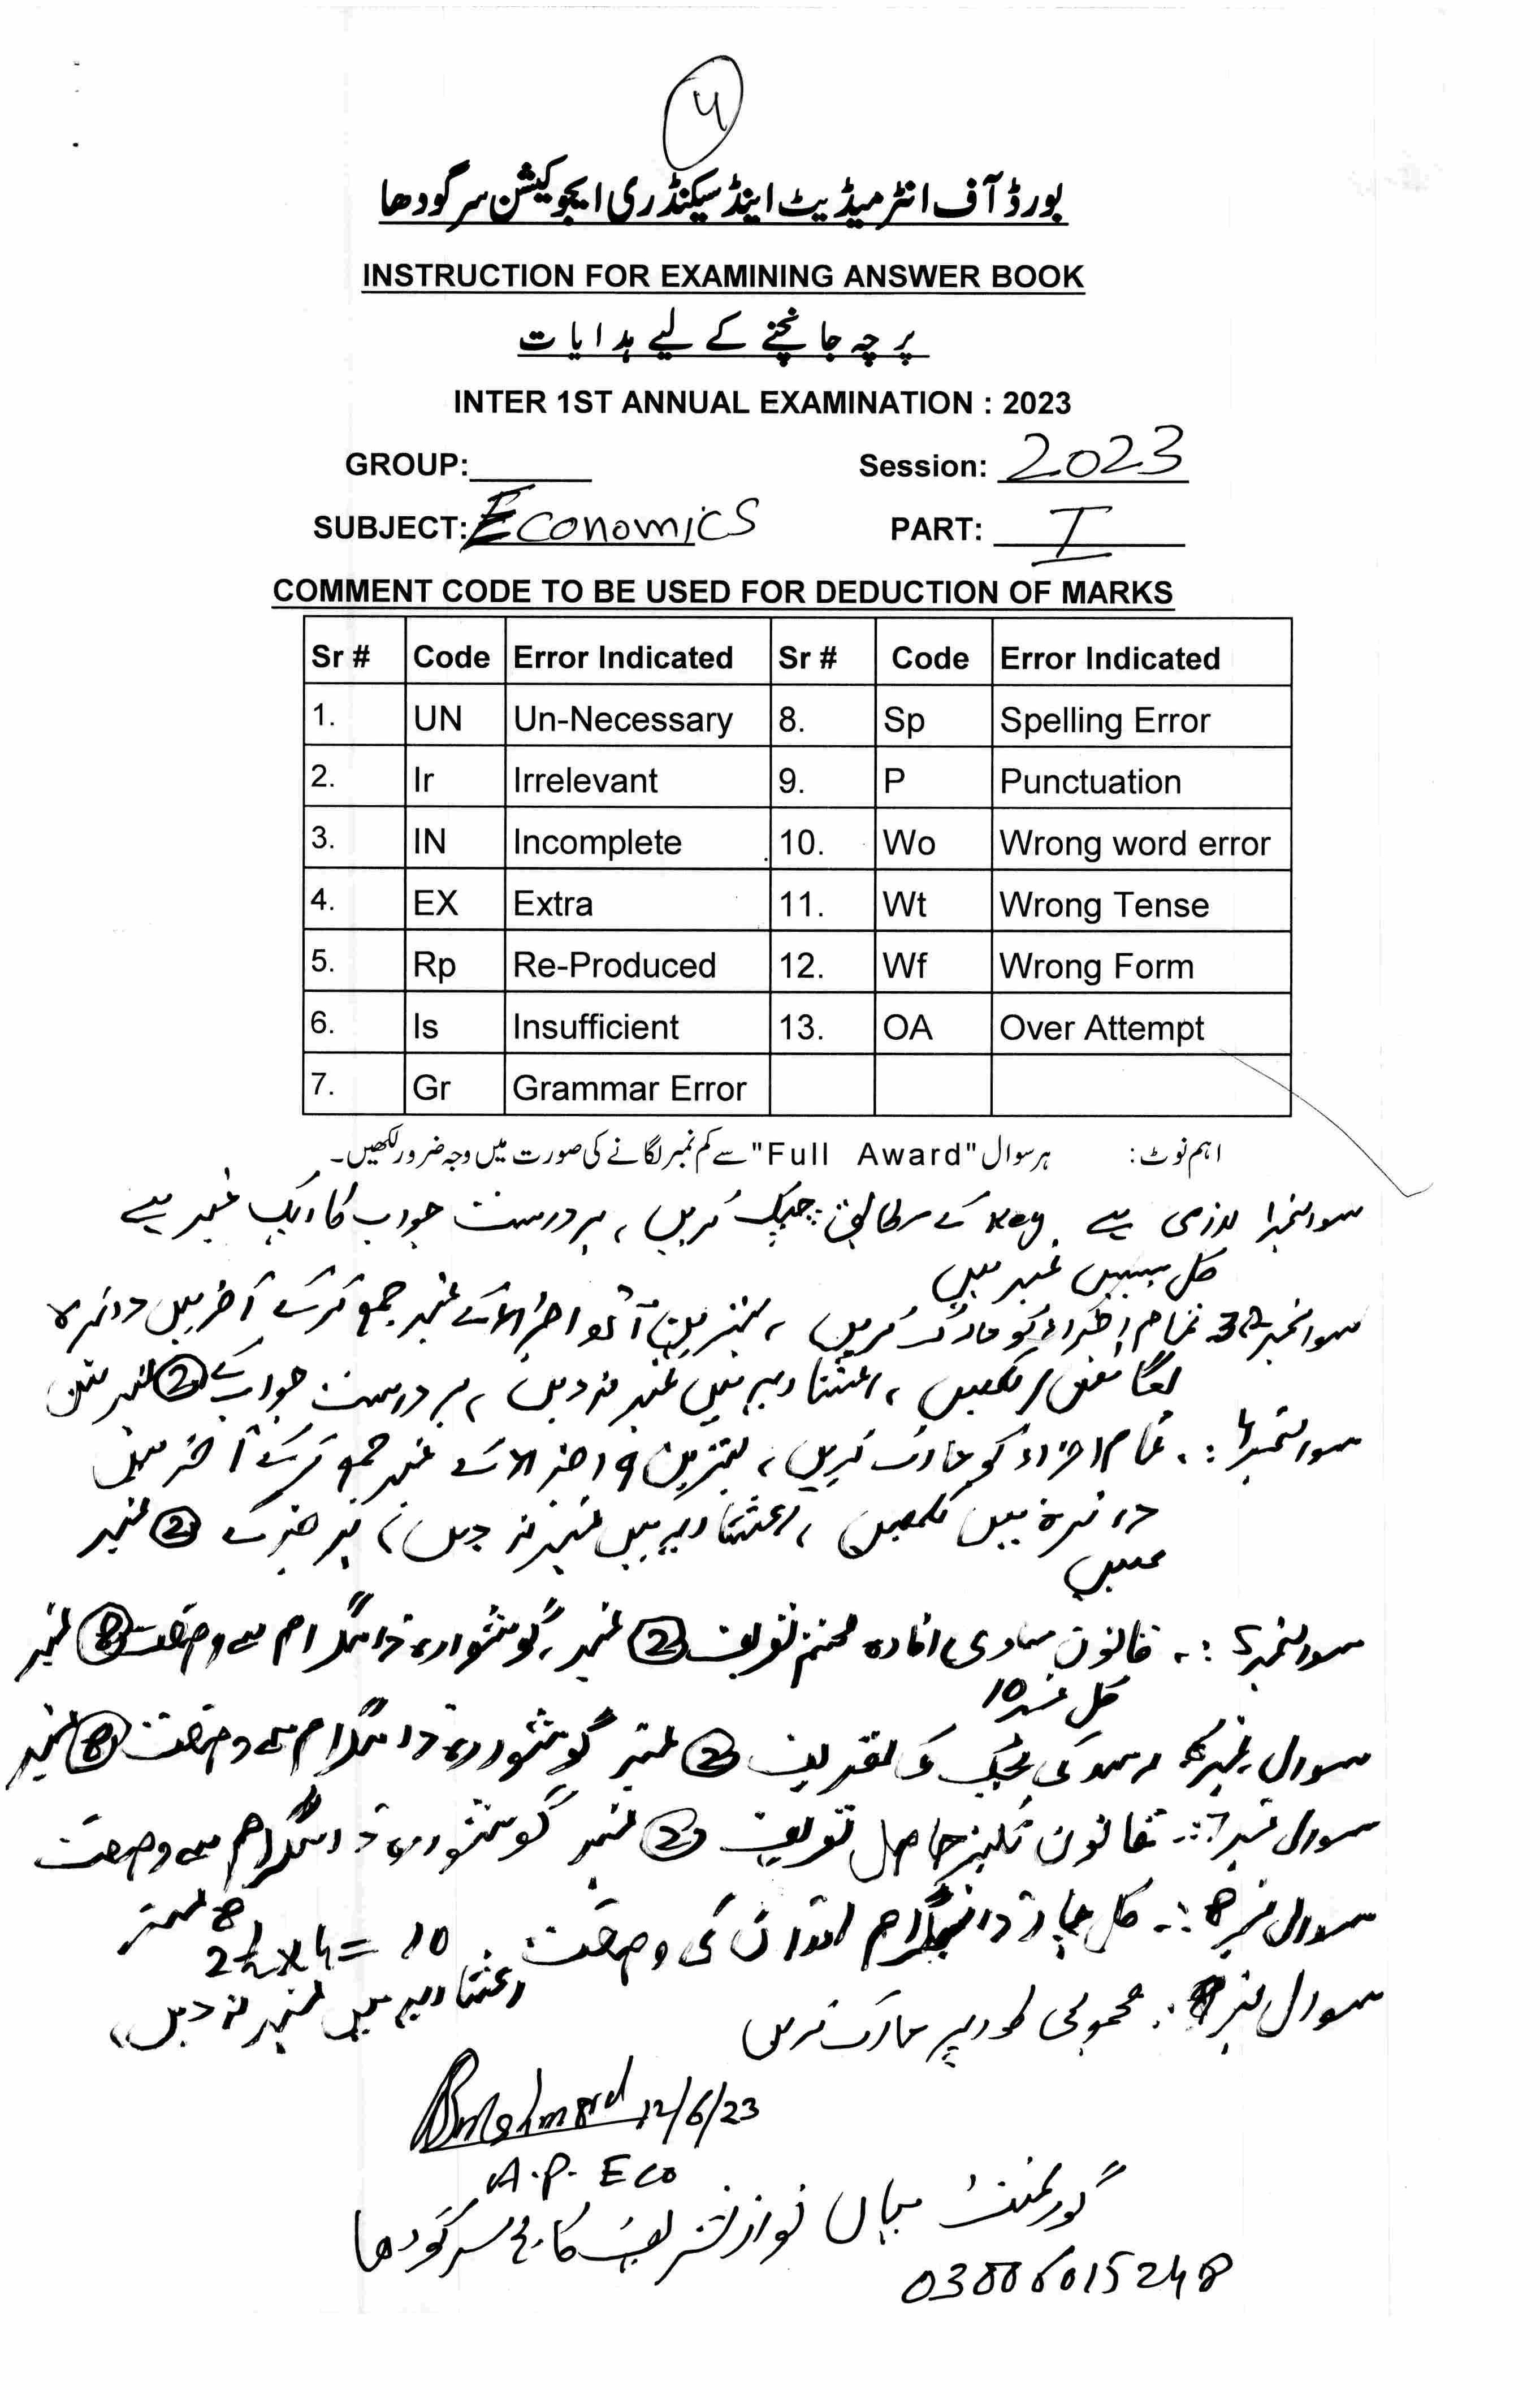 بورڈ آف انٹرمیڈیٹ اینڈ سیکنڈری ایجوکیشن سرگودھا
INSTRUCTION FOR EXAMINING ANSWER BOOK
پرچہ جانچنے کے لیے ہدایات
INTER 1ST ANNUAL EXAMINATION : 2023
GROUP: Session: 2023
SUBJECT: Economics PART: I
COMMENT CODE TO BE USED FOR DEDUCTION OF MARKS
Sr # Code Error Indicated Sr # Code Error Indicated
1. UN Un-Necessary 8. Sp Spelling Error
2. Ir Irrelevant 9. P Punctuation
3. IN Incomplete 10. Wo Wrong word error
4. EX Extra 11. Wt Wrong Tense
5. Rp Re-Produced 12. Wf Wrong Form
6. Is Insufficient 13. OA Over Attempt
7. Gr Grammar Error
اہم نوٹ: ہر سوال "Full Award" سے کم نمبر لگانے کی صورت میں وجہ ضرور لکھیں۔
سوال نمبر 1 لازمی ہے Key کے مطابق چیک کریں، ہر درست جواب کا ایک نمبر ہے
کل بیس نمبر ہیں
تمام اجزاء کو مارک کریں، بہترین آٹھ اجزاء کے نمبر جمع کرکے آخر میں دائرہ
لگا کر لکھیں، میں نمبر نہ دیں، ہر درست جواب کے 2 نمبر ہیں
سوال نمبر 4:۔ تمام اجزاء کو مارک کریں، بہترین 9 اجزاء کے نمبر جمع کرکے آخر میں
دائرہ میں لکھیں، میں نمبر نہ دیں، ہر جز کے 2 نمبر
ہیں
سوال نمبر 5:۔ قانون مساوی افادہ مختتم تعریف 2 نمبر، گوشوارہ، ڈائیگرام سے وضاحت 8 نمبر
کل نمبر 10
سوال نمبر 6 رسد کی لچک کی تعریف 2 نمبر گوشوارہ، ڈائیگرام سے وضاحت 8 نمبر
سوال نمبر 7:۔ قانون تکثیر حاصل تعریف 2 نمبر گوشوارہ، ڈائیگرام سے وضاحت
8 نمبر
سوال نمبر 8:۔ کل چار ڈائیگرام توازن کی وضاحت 2½ x 4 = 10
سوال نمبر 9:۔ مجموعی طور پر مارک کریں میں نمبر نہ دیں،
12/6/23
A.P. Eco
گورنمنٹ میاں نواز شریف کالج سرگودھا
03006015248